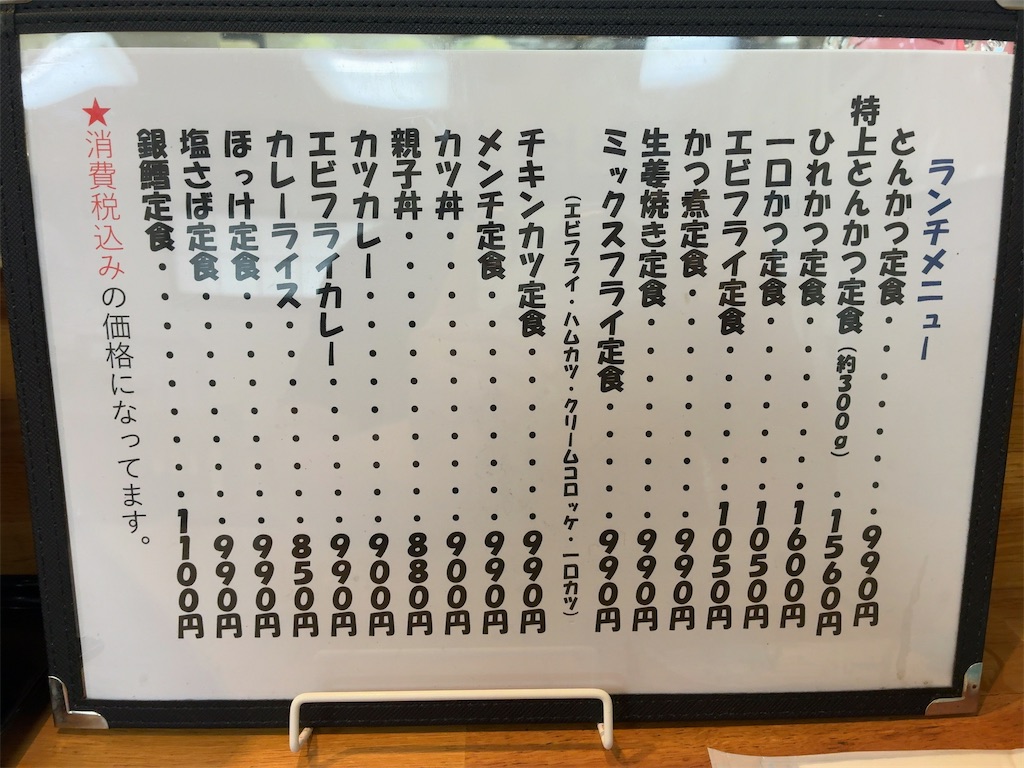 ランチメニュー
とんかつ定食・・・・・・・・990円
特上とんかつ定食(約300g)・1560円
ひれかつ定食・・・・・・・・1600円
一口かつ定食・・・・・・・・1050円
エビフライ定食・・・・・・・1050円
かつ煮定食・・・・・・・・・990円
生姜焼き定食・・・・・・・・990円
ミックスフライ定食・・・・・990円
(エビフライ・ハムカツ・クリームコロッケ・一口カツ)
チキンカツ定食・・・・・・・990円
メンチ定食・・・・・・・・・990円
カツ丼・・・・・・・・・・・900円
親子丼・・・・・・・・・・・880円
カツカレー・・・・・・・・・900円
エビフライカレー・・・・・・990円
カレーライス・・・・・・・・850円
ほっけ定食・・・・・・・・・990円
塩さば定食・・・・・・・・・990円
銀鱈定食・・・・・・・・・1100円
★消費税込みの価格になってます。